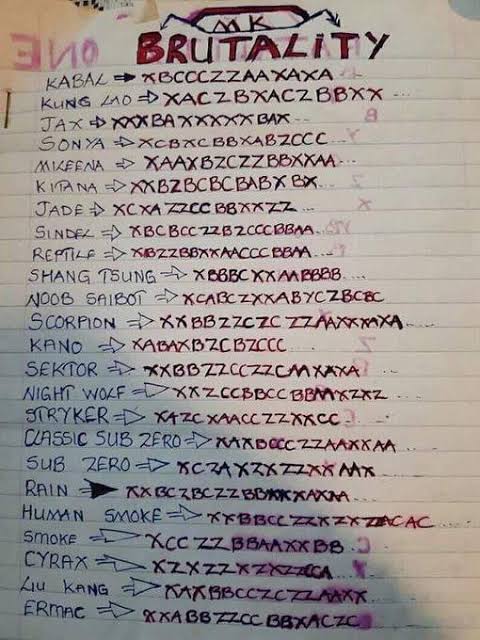 MK
BRUTALITY
KABAL → XBCCCZZAAXAXA ...
KUNG LAO ⇒ XACZBXACZBBXX ...
JAX ⇒ XXXBAXXXXXBAX...
SONYA ⇒ XCBXCBBXABZCCC ...
MILEENA ⇒ XAAXBZCZZBBXXAA...
KITANA ⇒ XXBZBCBCBABXBX...
JADE ⇒ XCXAZZCCBBXXZZ ....
SINDEL ⇒ XBCBCCZZBZCCCBBAA...
REPTILE ⇒ XBZZBBXXAACCCBBAA ....
SHANG TSUNG ⇒ XBBBCXXAABBBB....
NOOB SAIBOT ⇒ XCABCZXXABYCZBCBC
SCORPION ⇒ XXBBZZCZCZZAAXXXAXA...
KANO ⇒ XABAXBZCBZCCC ...
SEKTOR ⇒ XXBBZZCCZZCAAXAXA
NIGHT WOLF ⇒ XXZCCBBCCBBAAXZXZ...
STRYKER ⇒ XAZCXAACCZZXXCC ....
CLASSIC SUB ZERO ⇒ XAXBCCCZZAAXXAA
SUB ZERO ⇒ XCZAXZXZZXXAAX ...
RAIN → XXBCZBCZZBBXXXAXAA ....
HUMAN SMOKE ⇒ XXBBCCZZXZXZZACAC ....
SMOKE ⇒ XCCZZBBAAXXBB ..
CYRAX ⇒ XZXZZXZXZZCCA ..
LIU KANG ⇒ XAXBBCCZCZZAAXX
ERMAC ⇒ XXABBZZCCBBXACZC